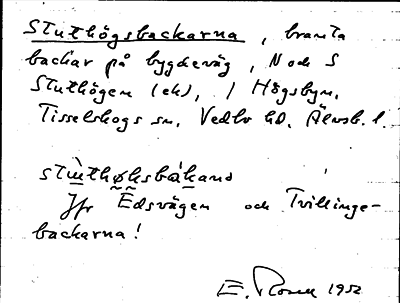 Stuthögsbackarna, branta
backar på bygdeväg, N och S
Stuthögen (ek), / Högsbyn,
Tisselskogs sn, Vedbo hd, Älvsb. l.
stùthøksbákanɒ
Jfr Edsvägen och Tvillinge-
backarna!
E. Rosell 1952